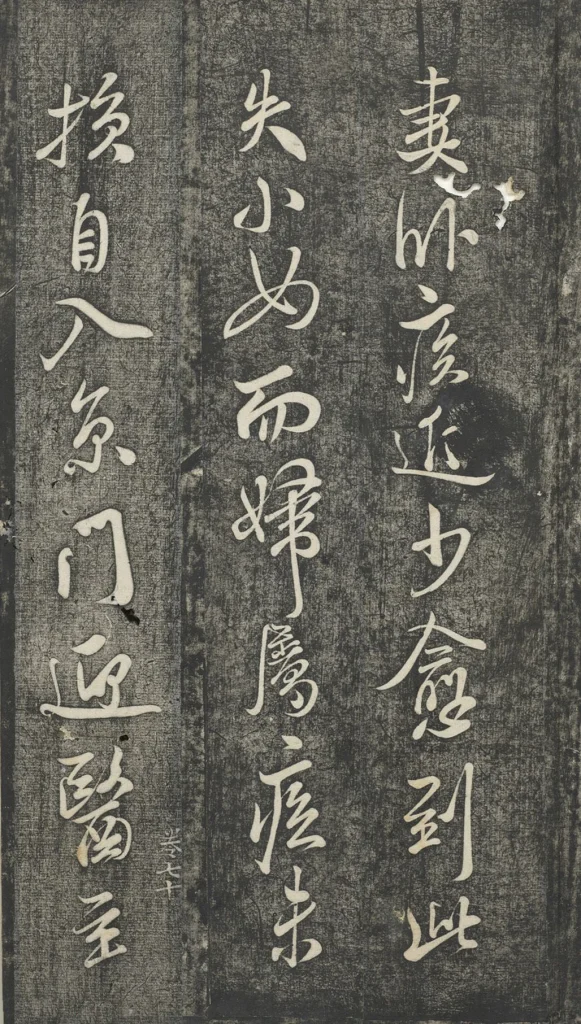 妻卧疾近少愈到此
失小女而婦屬疾未
損自入京门迎醫至
七十